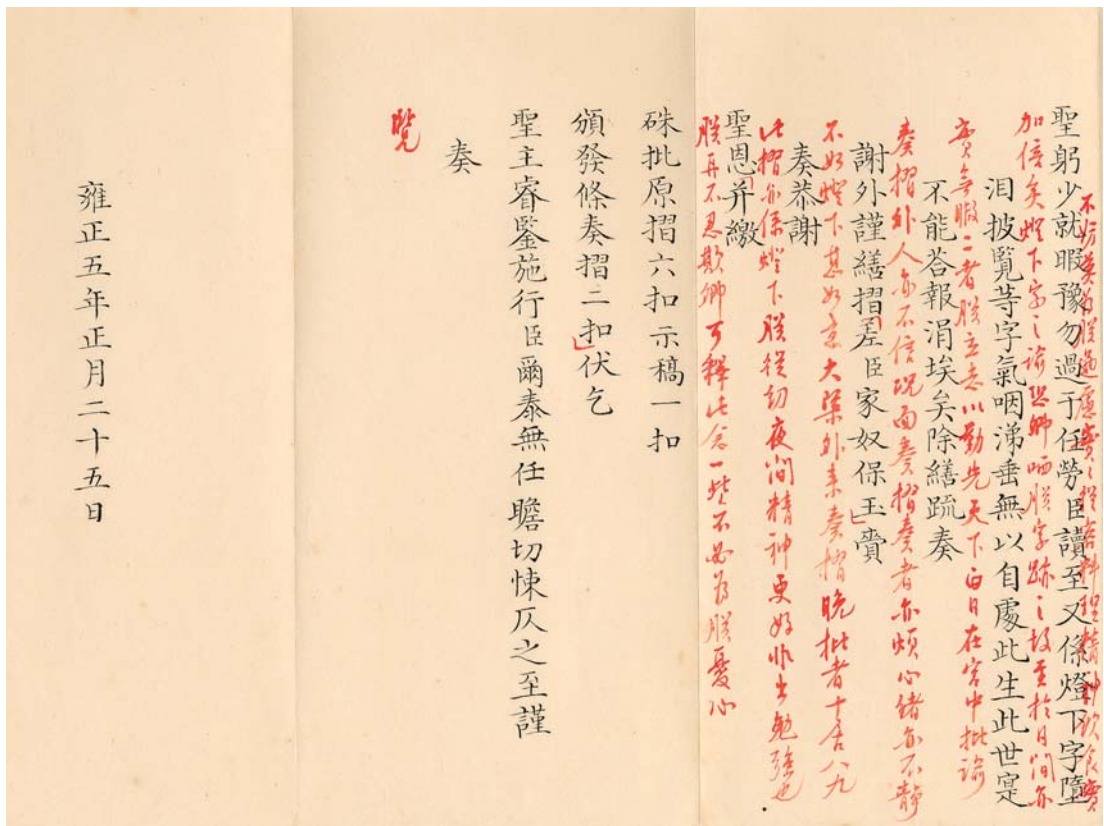 不妨莫為朕過慮實實從容料理精神飲食實
聖躬少就暇豫勿過于任勞臣讀至又係燈下字墮
加倍矣燈下字之諭恐卿哂朕字跡之故至於日間亦
泪披覽等字氣咽涕垂無以自處此生此世寔
實無暇二者朕立志以勤先天下白日在宮中批諭
不能荅報涓埃矣除繕疏奏
奏摺外人亦不信況面奏摺奏者亦煩心緒亦不靜
謝外謹繕摺差臣家奴保玉賫
不如燈下甚如意大槩外來奏摺晚批者十居八九
奏恭謝
此摺亦係燈下朕從幼夜間精神更好非出勉強也
聖恩并繳
朕再不忍欺卿可釋此念一些不必為朕憂心
硃批原摺六扣示稿一扣
頒發條奏摺二扣伏乞
聖主睿鑒施行臣爾泰無任瞻切悚仄之至謹
奏
覽
雍正五年正月二十五日